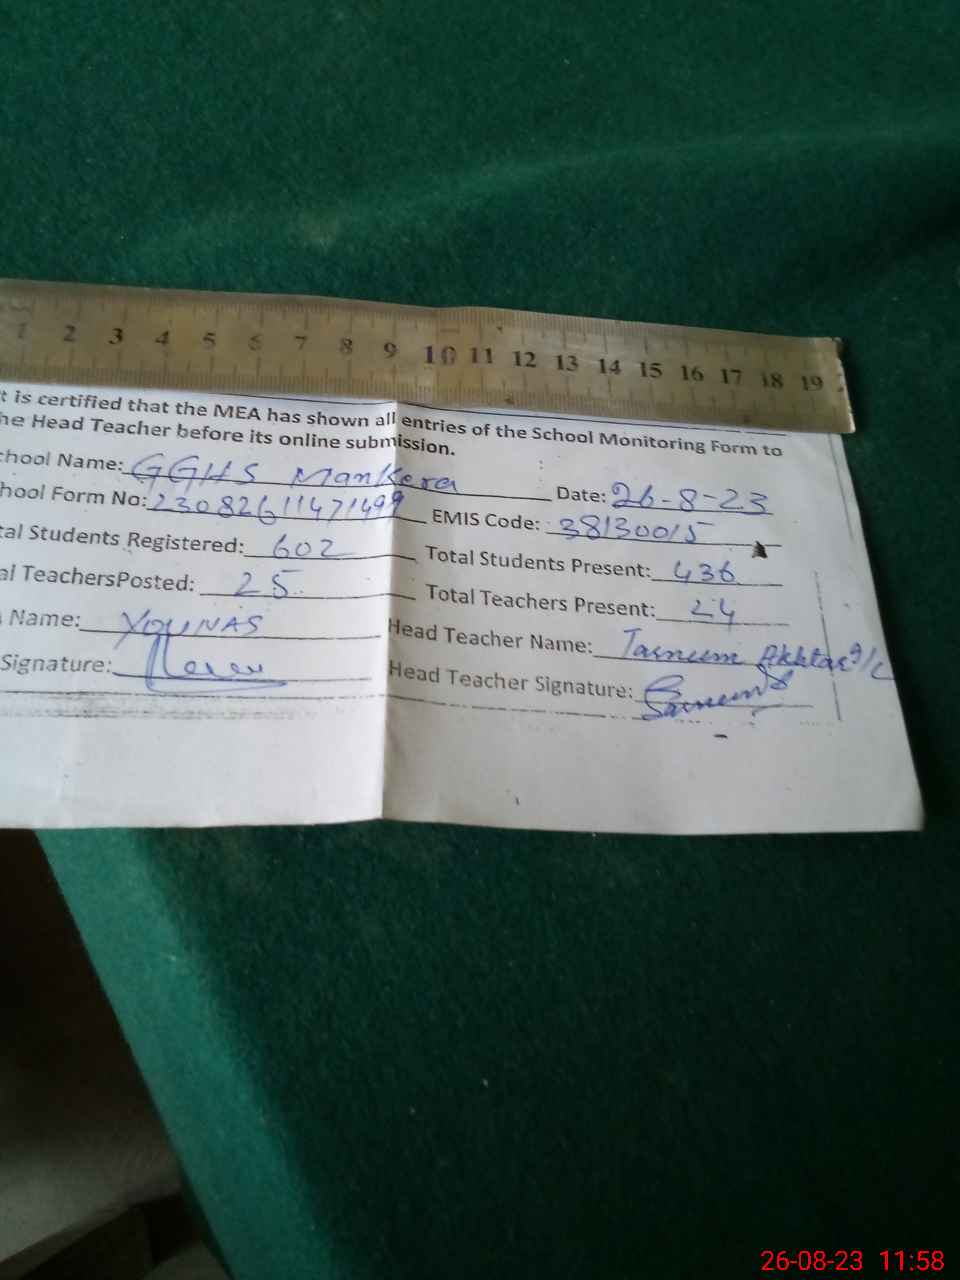 1 2 3 4 5 6 7 8 9 10 11 12 13 14 15 16 17 18 19
t is certified that the MEA has shown all entries of the School Monitoring Form to
he Head Teacher before its online submission.
chool Name: GGHS Mankera Date: 26-8-23
hool Form No: 23082611471499 EMIS Code: 38130015
tal Students Registered: 602 Total Students Present: 436
al TeachersPosted: 25 Total Teachers Present: 24
Name: YOUNAS Head Teacher Name: Tasneem Akhtar I/C
Signature: Head Teacher Signature: Tasneem
26-08-23 11:58